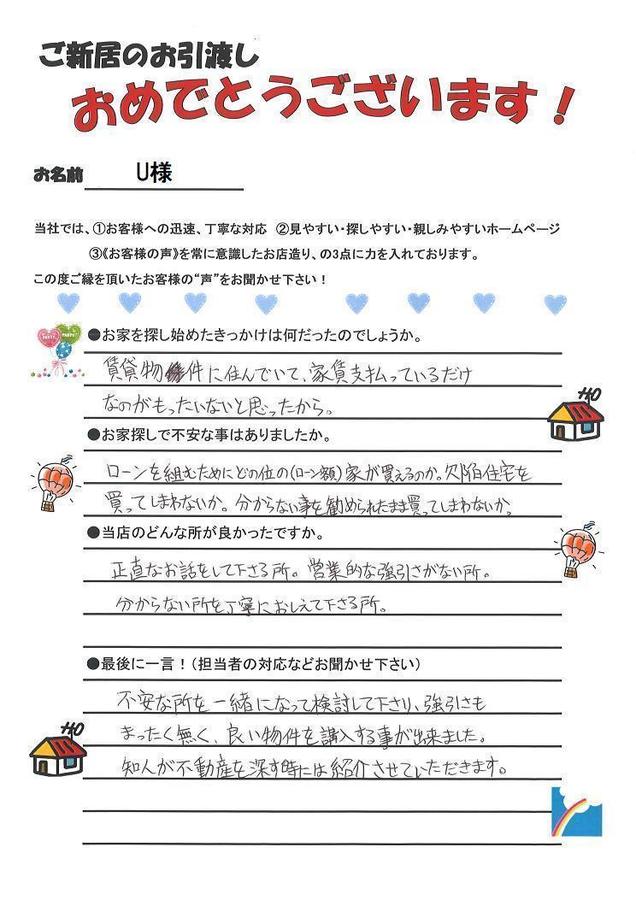 ご新居のお引渡し
おめでとうございます！
お名前 U様
当社では、①お客様への迅速、丁寧な対応 ②見やすい・探しやすい・親しみやすいホームページ
③《お客様の声》を常に意識したお店造り、の3点に力を入れております。
この度ご縁を頂いたお客様の“声”をお聞かせ下さい！
●お家を探し始めたきっかけは何だったのでしょうか。
賃貸物件に住んでいて、家賃支払っているだけ
なのがもったいないと思ったから。
●お家探しで不安な事はありましたか。
ローンを組むためにどの位の(ローン額)家が買えるのか。欠陥住宅を
買ってしまわないか。分からない事を勧められたまま買ってしまわないか。
●当店のどんな所が良かったですか。
正直なお話をして下さる所。営業的な強引さがない所。
分からない所を丁寧におしえて下さる所。
●最後に一言！（担当者の対応などお聞かせ下さい）
不安な所を一緒になって検討して下さり、強引さも
まったく無く、良い物件を購入する事が出来ました。
知人が不動産を探す時には紹介させていただきます。